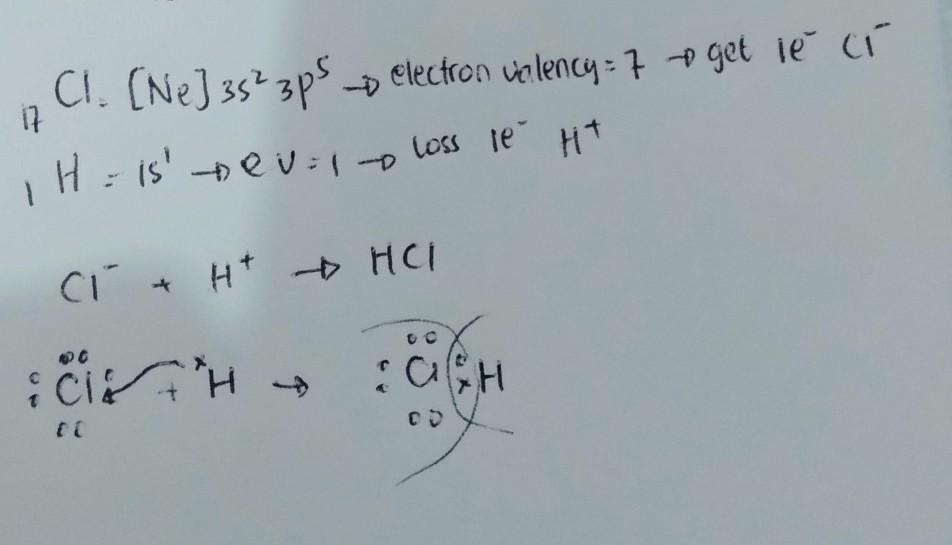 ₁₇Cl = [Ne] 3s² 3p⁵ → electron valency = 7 → get 1e⁻ Cl⁻
₁H = 1s¹ → e v = 1 → loss 1e⁻ H⁺
Cl⁻ + H⁺ → HCl
Cl + H → Cl H